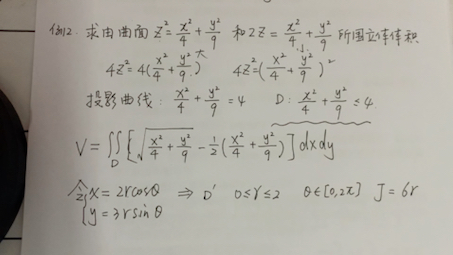 例2. 求由曲面 z² = x²/4 + y²/9 和 2z = x²/4 + y²/9 所围立体体积
4z² = 4(x²/4 + y²/9) 大 4z² = (x²/4 + y²/9)² 小
投影曲线: x²/4 + y²/9 = 4 D: x²/4 + y²/9 ≤ 4
V = ∬_D [√(x²/4 + y²/9) - 1/2(x²/4 + y²/9)] dxdy
令 { x = 2rcosθ ⇒ D' 0≤r≤2 θ∈[0,2π] J = 6r
y = 3rsinθ